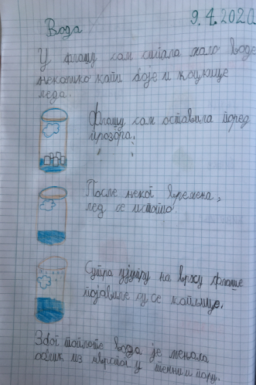 Вода 9.4.2020
У флашу сам ставила мало воде
неколико капи боје и коцкице
леда
Флашу сам оставила поред
прозора.
После неког времена,
лед се истопио
Сутра ујутру на врху флаше
појавиле су се капљице.
Због топлоте вода је мењала
облик из чврстог у течни и пару.